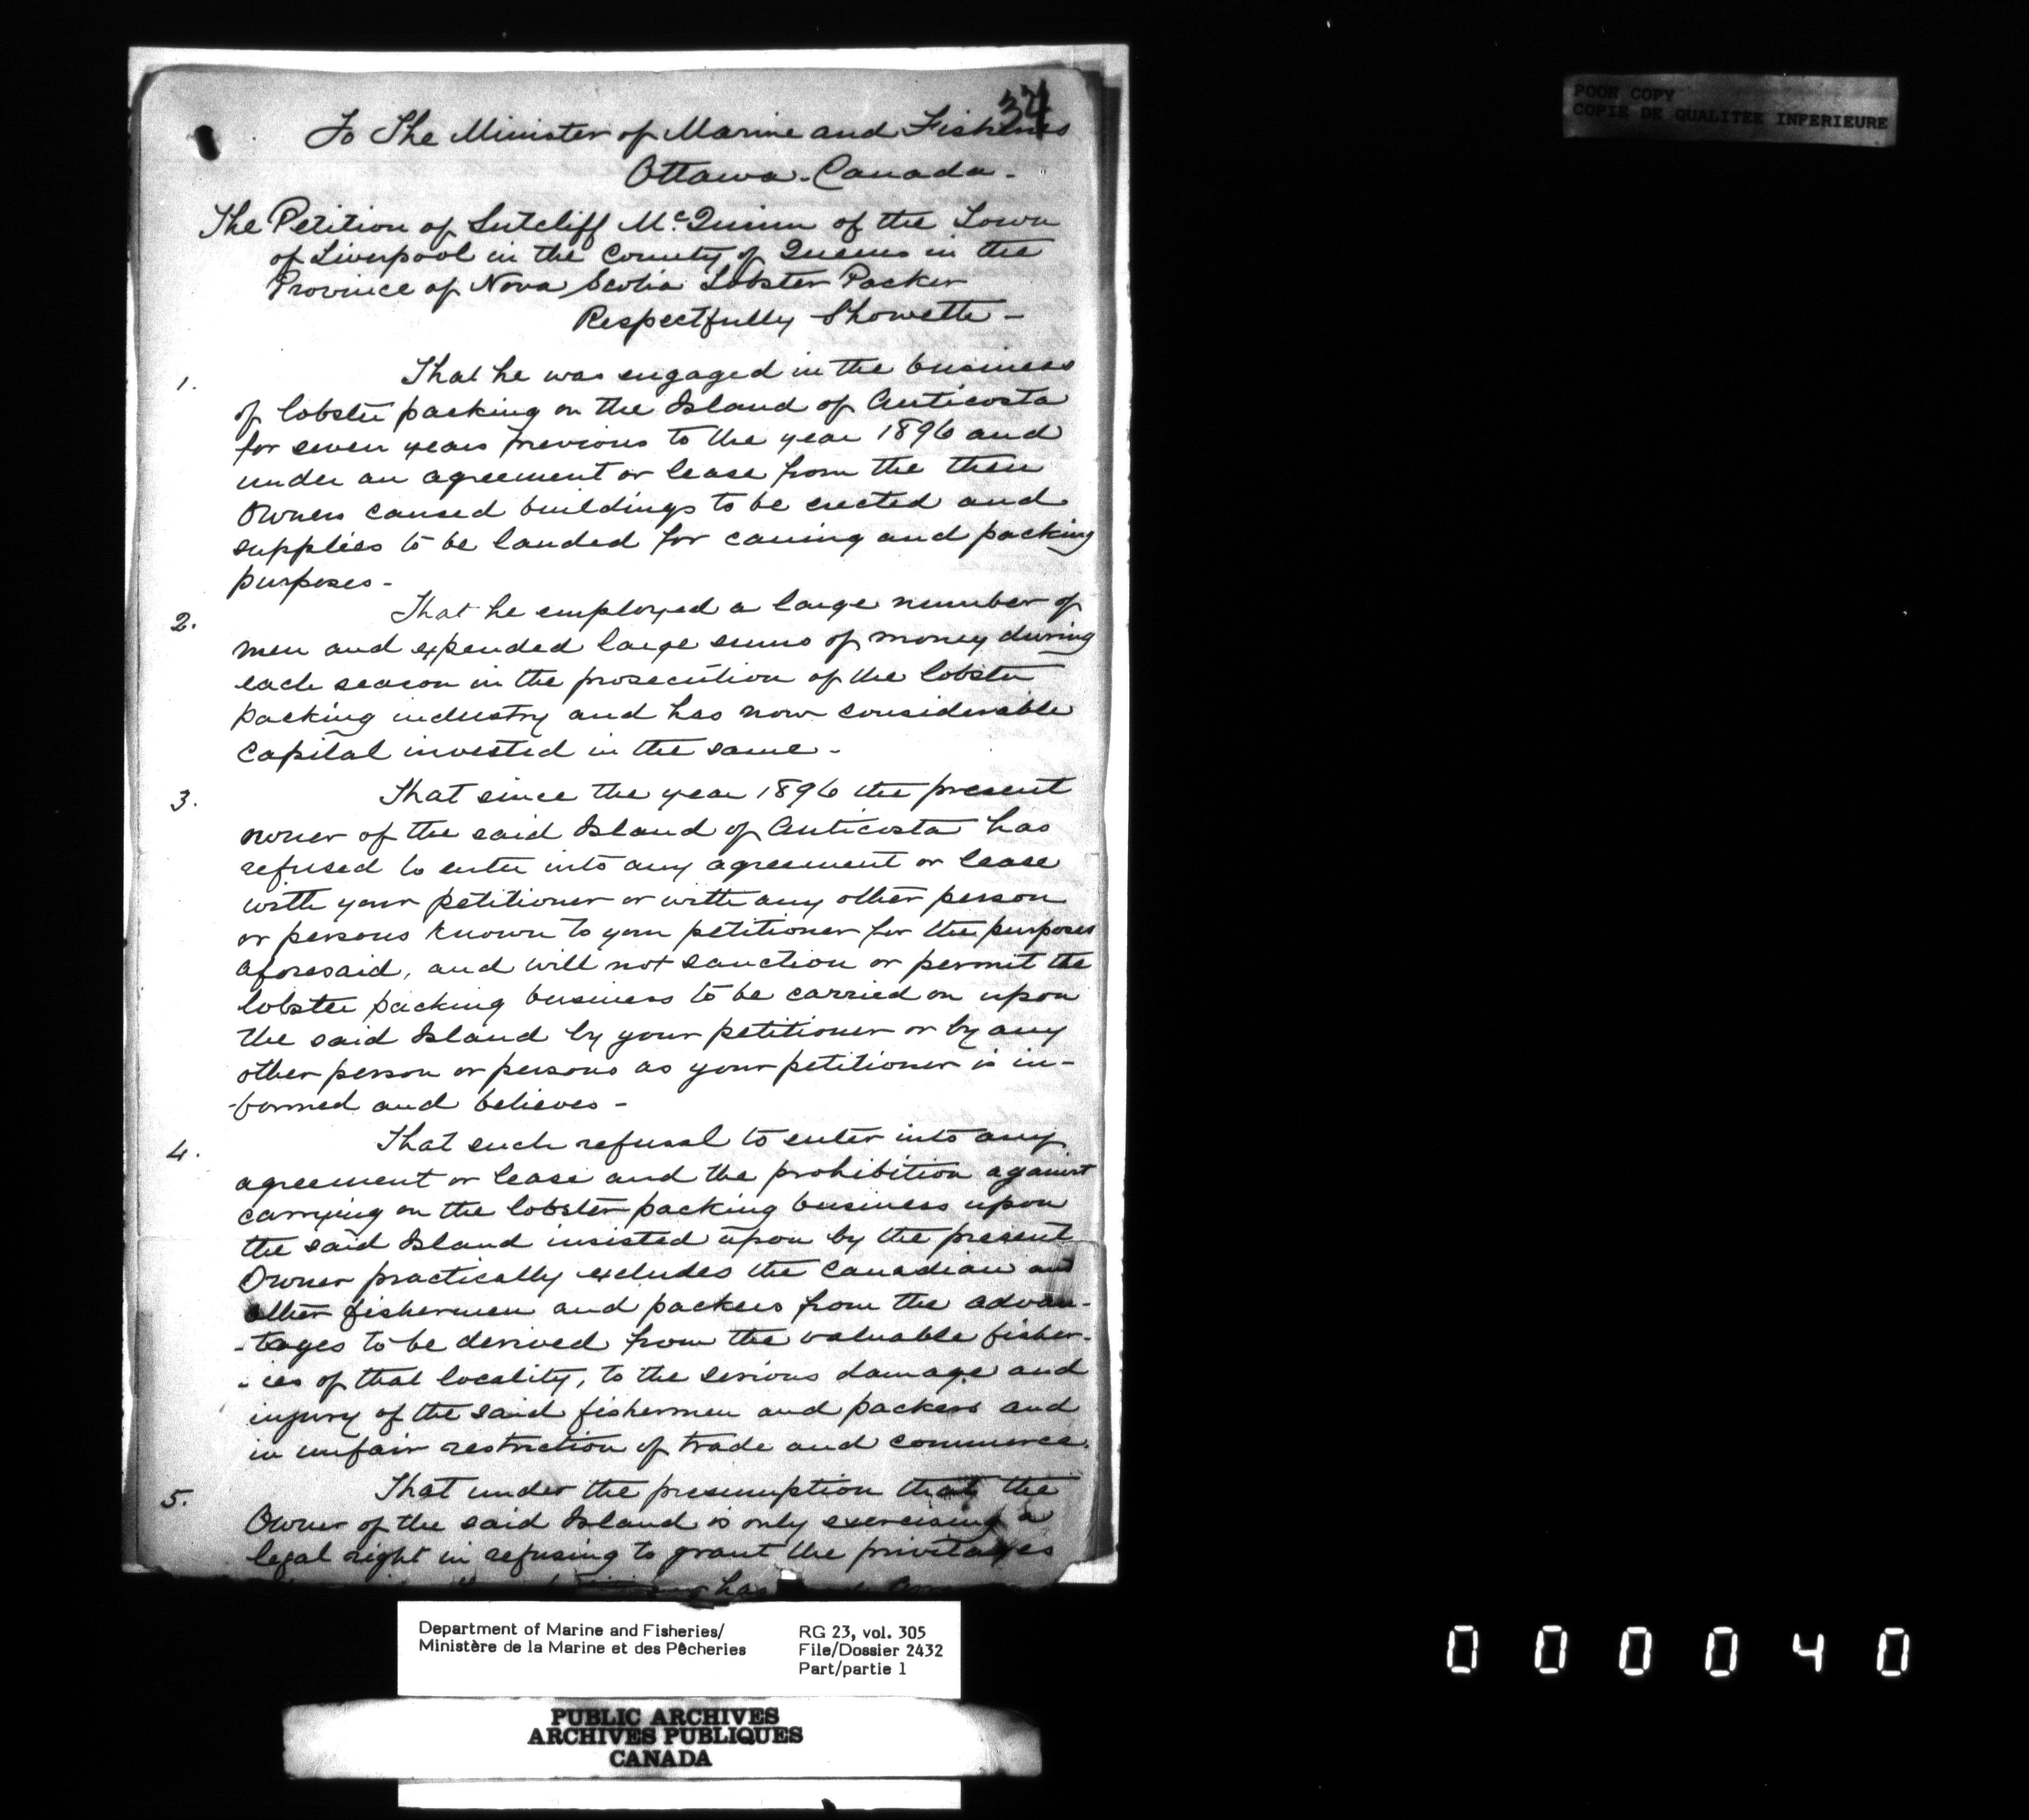 34
To The Minister of Marine and Fisheries
Ottawa - Canada -
The Petition of Sutcliff McQuinn of the Town
of Liverpool in the County of Queens in the
Province of Nova Scotia Lobster Packer
Respectfully Showeth -
1. That he was engaged in the business
of lobster packing on the Island of Anticosta
for seven years previous to the year 1896 and
under an agreement or lease from the then
Owners caused buildings to be erected and
supplies to be landed for caning and packing
purposes -
2. That he employed a large number of
men and expended large sums of money during
each season in the prosecution of the lobster
packing industry and has now considerable
capital invested in the same -
3. That since the year 1896 the present
owner of the said Island of Anticosta has
refused to enter into any agreement or lease
with your petitioner or with any other person
or persons known to your petitioner for the purposes
aforesaid, and will not sanction or permit the
lobster packing business to be carried on upon
the said Island by your petitioner or by any
other person or persons as your petitioner is in-
-formed and believes -
4. That such refusal to enter into any
agreement or lease and the prohibition against
carrying on the lobster packing business upon
the said Island insisted upon by the present
Owner practically excludes the Canadian and
other fishermen and packers from the advan-
-tages to be derived from the valuable fisher-
-ies of that locality, to the serious damage and
injury of the said fishermen and packers and
in unfair restriction of trade and commerce.
5. That under the presumption that the
Owner of the said Island is only exercising a
legal right in refusing to grant the privileges
has
POOR COPY
COPIE DE QUALITEE INFERIEURE
Department of Marine and Fisheries/
Ministère de la Marine et des Pêcheries
RG 23, vol. 305
File/Dossier 2432
Part/partie 1
PUBLIC ARCHIVES
ARCHIVES PUBLIQUES
CANADA
000040